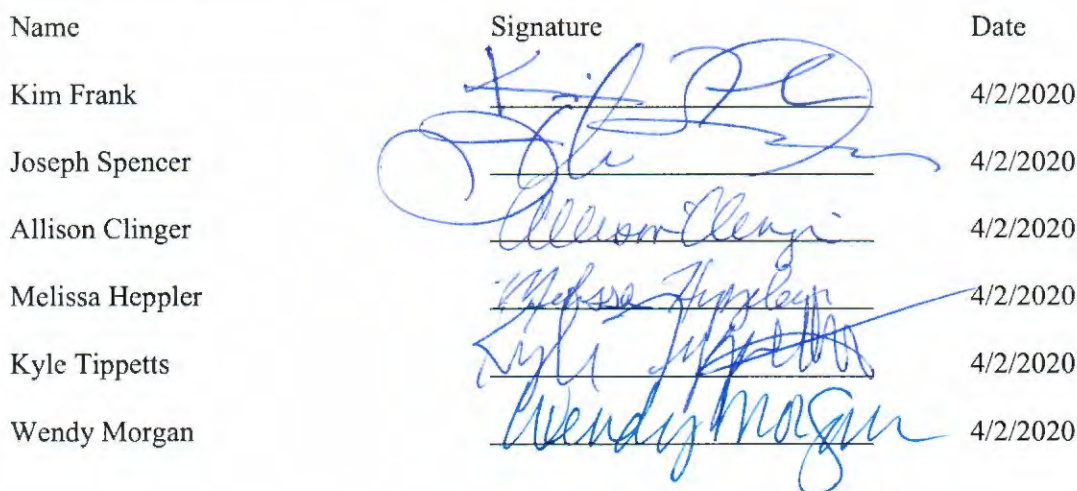 Name Signature Date
Kim Frank Kim Frank 4/2/2020
Joseph Spencer 4/2/2020
Allison Clinger Allison Clinger 4/2/2020
Melissa Heppler Melissa Heppler 4/2/2020
Kyle Tippetts Kyle Tippetts 4/2/2020
Wendy Morgan Wendy Morgan 4/2/2020